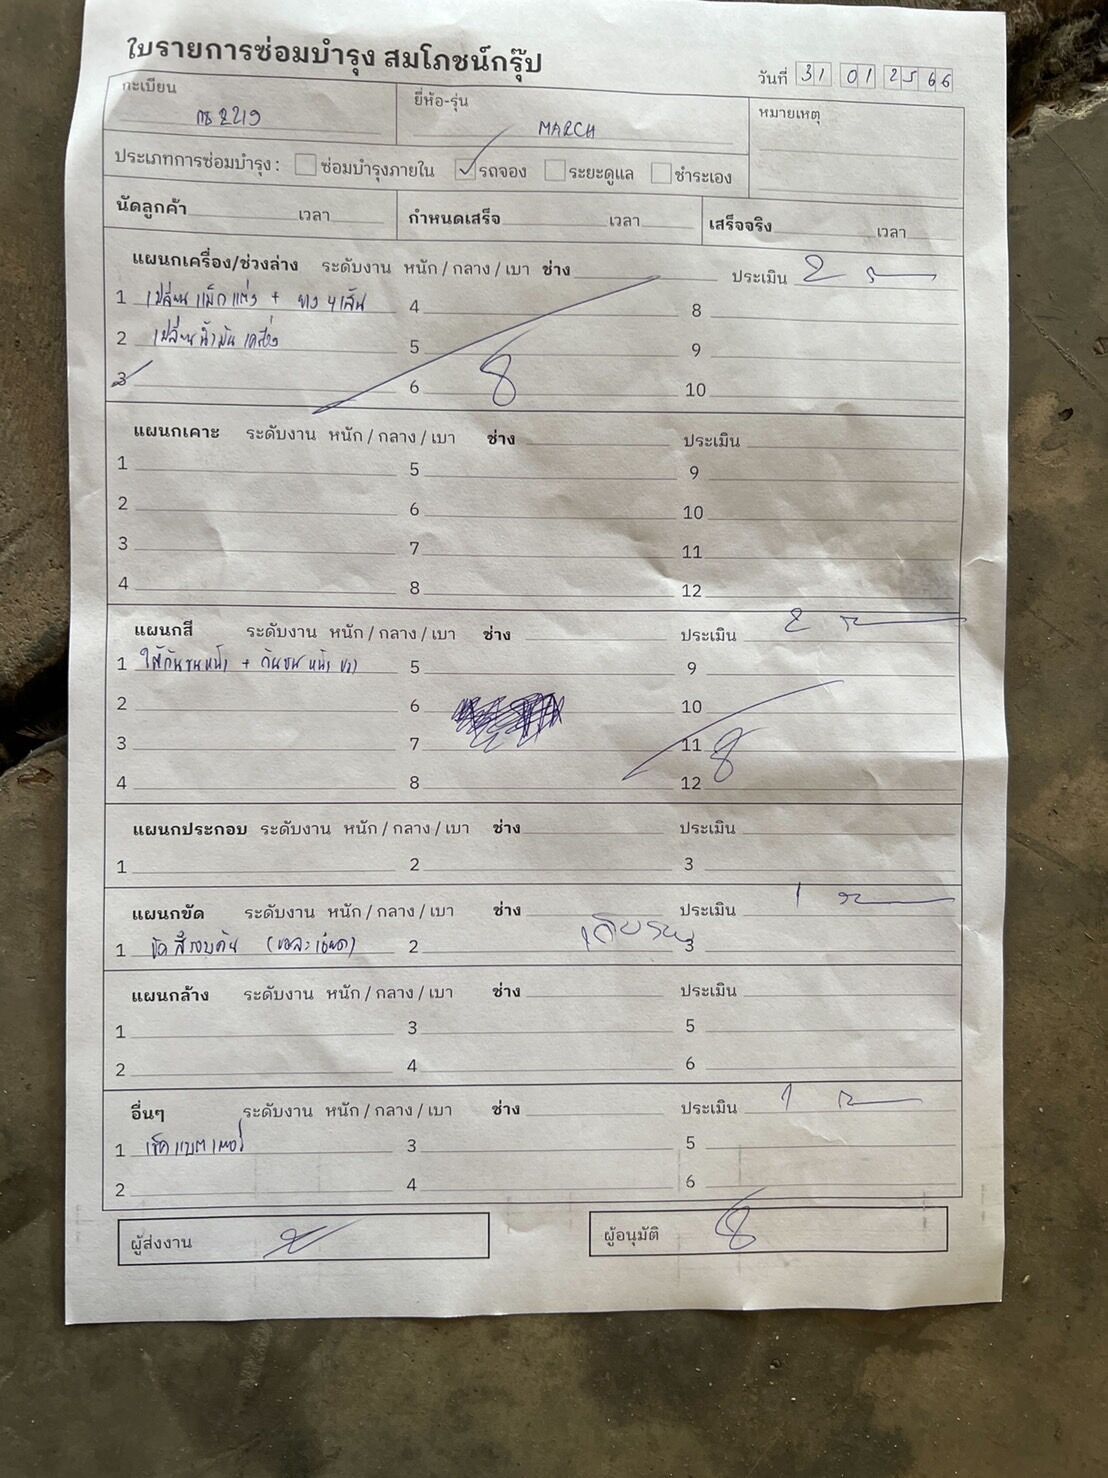 ใบรายการซ่อมบำรุง สมโภชน์กรุ๊ป
วันที่ 31 01 2566
ทะเบียน 2219
ยี่ห้อ-รุ่น MARCH
หมายเหตุ
ประเภทการซ่อมบำรุง : ซ่อมบำรุงภายใน รถจอง ระยะดูแล ชำระเอง
นัดลูกค้า เวลา กำหนดเสร็จ เวลา เสร็จจริง เวลา
แผนกเครื่อง/ช่วงล่าง ระดับงาน หนัก / กลาง / เบา ช่าง ประเมิน 2
1 เปลี่ยนแม็กแต่ง + ยาง 4 เส้น 4 8
2 เปลี่ยนน้ำมันเครื่อง 5 9
3 6 10
แผนกเคาะ ระดับงาน หนัก / กลาง / เบา ช่าง ประเมิน
1 5 9
2 6 10
3 7 11
4 8 12
แผนกสี ระดับงาน หนัก / กลาง / เบา ช่าง ประเมิน 2
1 ใต้กันชนหน้า + กันชนหน้าขวา 5 9
2 6 10
3 7 11
4 8 12
แผนกประกอบ ระดับงาน หนัก / กลาง / เบา ช่าง ประเมิน
1 2 3
แผนกขัด ระดับงาน หนัก / กลาง / เบา ช่าง ประเมิน 1
1 ขัดสีรอบคัน (ขอละเอียด) 2 3
แผนกล้าง ระดับงาน หนัก / กลาง / เบา ช่าง ประเมิน
1 3 5
2 4 6
อื่นๆ ระดับงาน หนัก / กลาง / เบา ช่าง ประเมิน 1
1 เช็คแบตเตอรี่ 3 5
2 4 6
ผู้ส่งงาน ผู้อนุมัติ